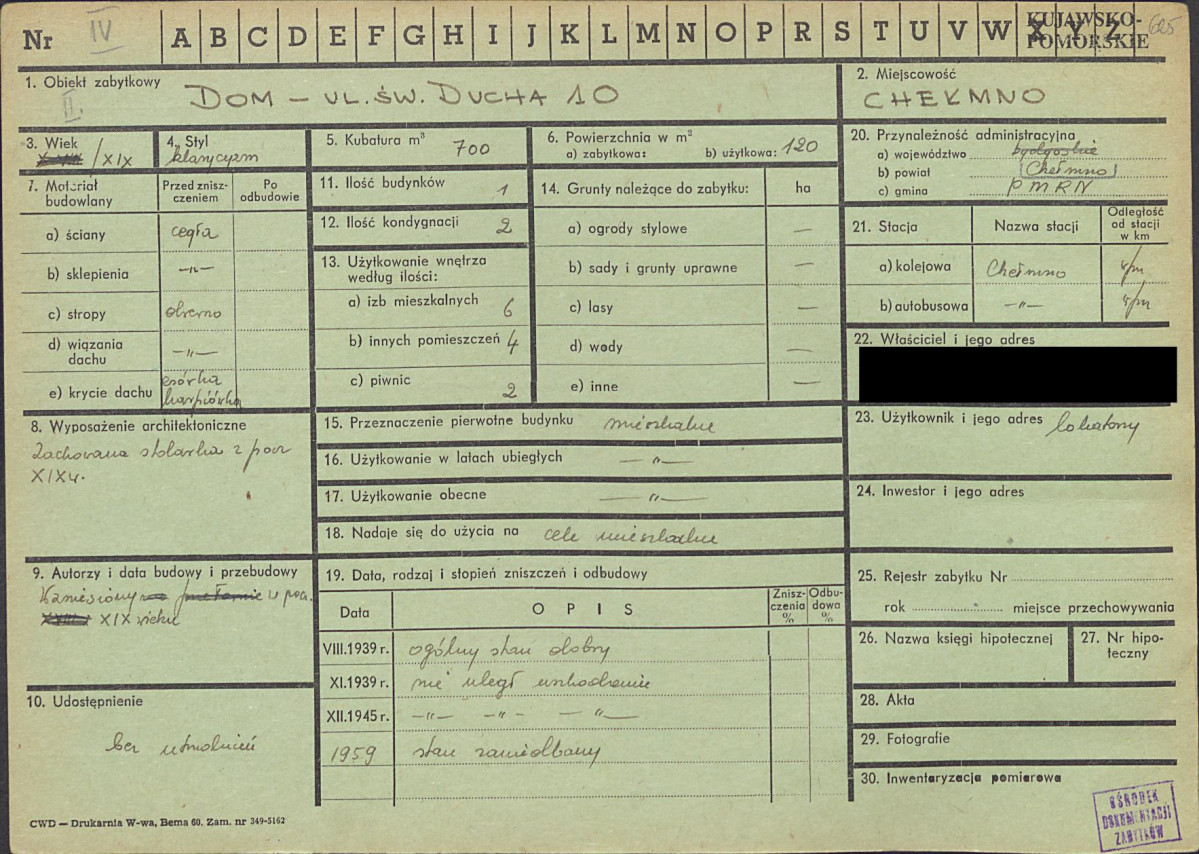 Nr IV A B C D E F G H I J K L M N O P R S T U V W X Y Z
KUJAWSKO-
POMORSKIE
625
1. Obiekt zabytkowy
II.
DOM – UL. ŚW. DUCHA 10
2. Miejscowość
CHEŁMNO
3. Wiek
/XIX
4. Styl
klasycyzm
5. Kubatura m³ 700
6. Powierzchnia w m²
a) zabytkowa: b) użytkowa: 120
20. Przynależność administracyjna
a) województwo bydgoskie
b) powiat Chełmno
c) gmina PMRN
7. Materiał
budowlany
Przed znisz-
czeniem
Po
odbudowie
a) ściany cegła
b) sklepienia —"—
c) stropy drewno
d) wiązania
dachu —"—
e) krycie dachu esówka
karpiówka
11. Ilość budynków 1
12. Ilość kondygnacji 2
13. Użytkowanie wnętrza
według ilości:
a) izb mieszkalnych 6
b) innych pomieszczeń 4
c) piwnic 2
14. Grunty należące do zabytku: ha
a) ogrody stylowe —
b) sady i grunty uprawne —
c) lasy —
d) wody —
e) inne —
21. Stacja Nazwa stacji Odległość
od stacji
w km
a) kolejowa Chełmno
b) autobusowa —"—
22. Właściciel i jego adres
8. Wyposażenie architektoniczne
Zachowana stolarka z pocz
XIXw.
15. Przeznaczenie pierwotne budynku mieszkalne
16. Użytkowanie w latach ubiegłych —"—
17. Użytkowanie obecne —"—
18. Nadaje się do użycia na cele mieszkalne
23. Użytkownik i jego adres lokatorzy
24. Inwestor i jego adres
9. Autorzy i data budowy i przebudowy
Wzniesiony na przełomie w pocz.
XVIII XIX wieku
10. Udostępnienie
bez utrudnień
19. Data, rodzaj i stopień zniszczeń i odbudowy
Data OPIS Znisz-
czenia
% Odbu-
dowa
%
VIII.1939 r. ogólny stan dobry
XI.1939 r. nie uległ uszkodzeniu
XII.1945 r. —"— —"— —"—
1959 stan zaniedbany
25. Rejestr zabytku Nr
rok miejsce przechowywania
26. Nazwa księgi hipotecznej
27. Nr hipo-
teczny
28. Akta
29. Fotografie
30. Inwentaryzacja pomiarowa
OŚRODEK
DOKUMENTACJI
ZABYTKÓW
CWD — Drukarnia W-wa, Bema 60. Zam. nr 349-5162